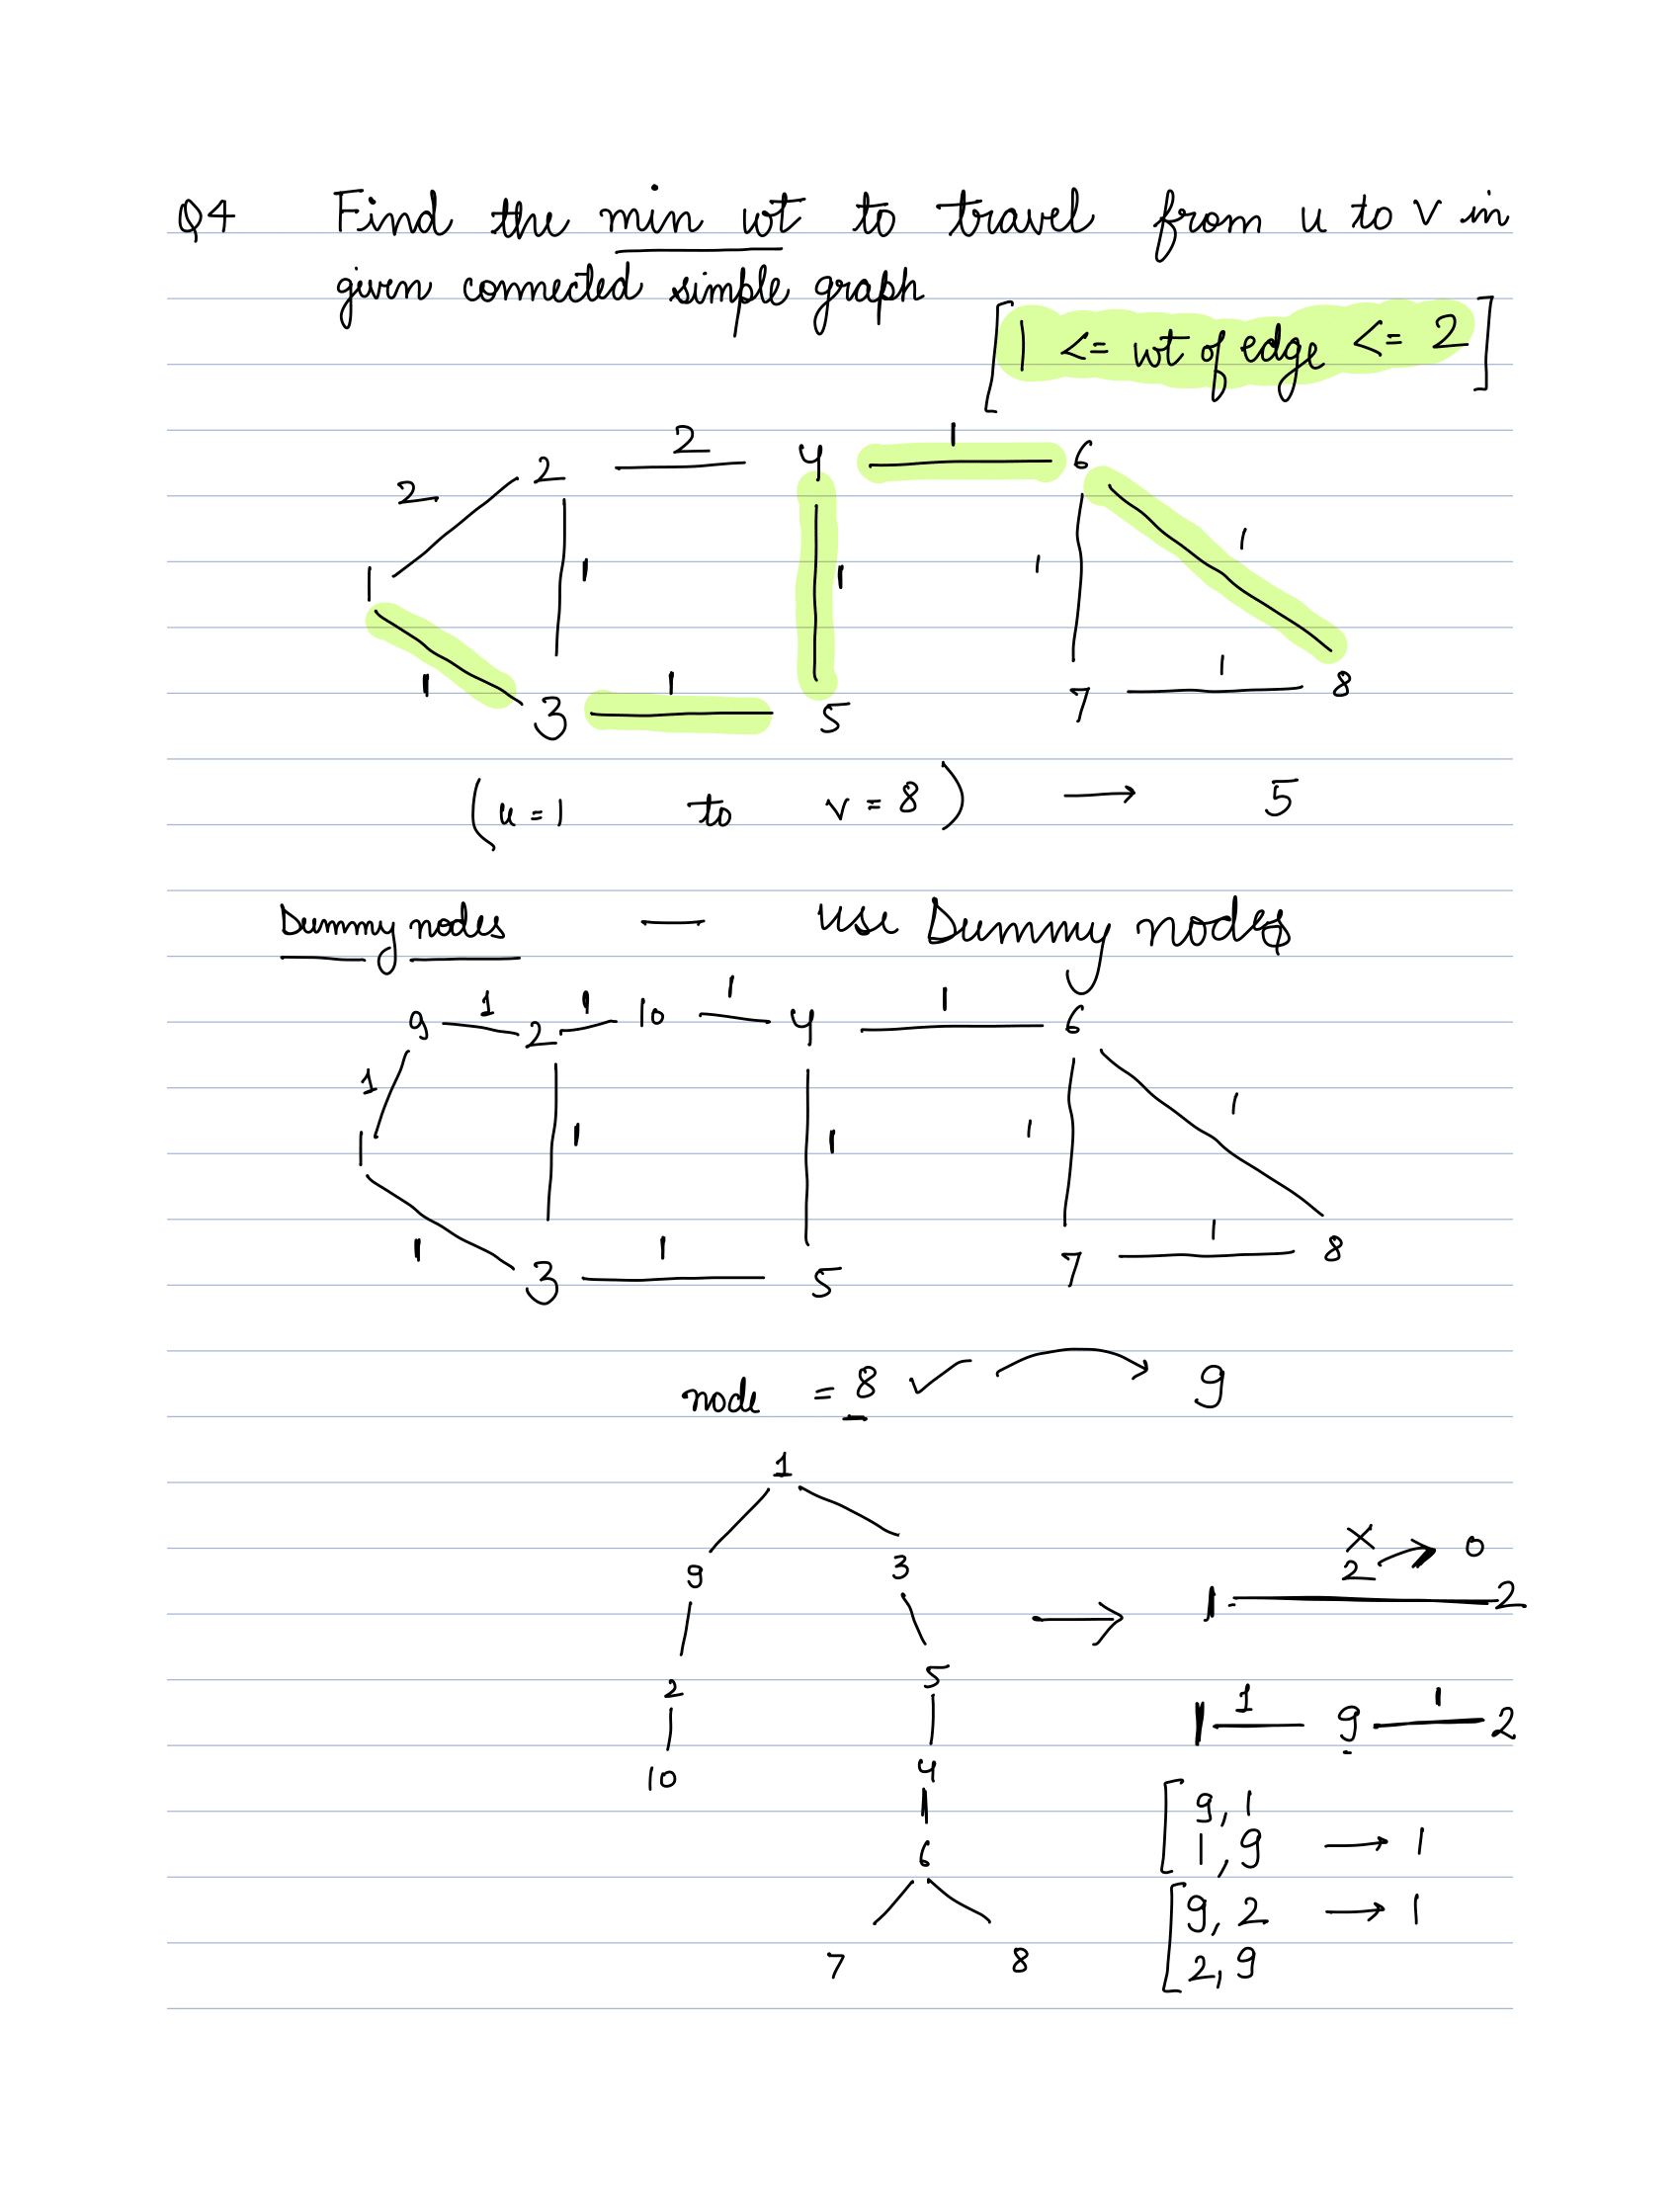 Q4 Find the min wt to travel from u to v in
given connected simple graph
[1 <= wt of edge <= 2]
2 2 2 4 1 6
1 1 1 1 1
1 3 1 5 7 1 8
(u=1 to v=8) → 5
Dummy nodes — use Dummy nodes
9 1 2 1 10 1 4 1 6
1
1 1 1 1 1
1 3 1 5 7 1 8
node = 8 ✓ → 9
1
9 3
× 2 → 0
1 2
2 5
1 1 9 1 2
10 4
9, 1
1, 9 → 1
6
9, 2 → 1
2, 9
7 8